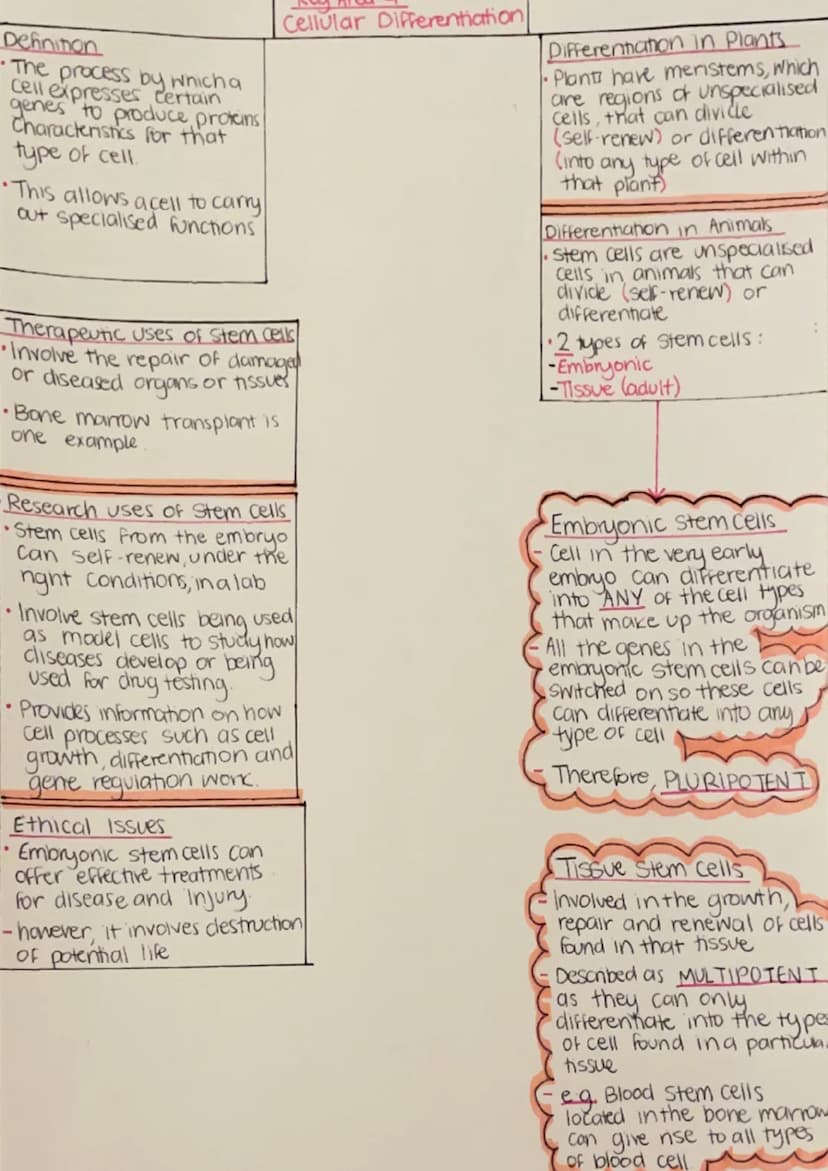 Key Area
Cellular Differentiation
Definition
• The process by which a
cell expresses certain
genes to produce proteins
characteristics for that
type of cell.
• This allows a cell to carry
out specialised functions
Therapeutic uses of stem cells
• Involve the repair of damaged
or diseased organs or tissues
• Bone marrow transplant is
one example
Research uses of stem cells
• Stem cells from the embryo
can self-renew, under the
right conditions, in a lab
• Involve stem cells being used
as model cells to study how
diseases develop or being
used for drug testing.
• Provides information on how
cell processes such as cell
growth, differentiation and
gene regulation work.
Ethical Issues
• Embryonic stem cells can
offer effective treatments
for disease and injury.
- however, it involves destruction
of potential life
Differentiation in Plants
• Plants have meristems, which
are regions of unspecialised
cells, that can divide
(self-renew) or differentiation
(into any type of cell within
that plant)
Differentiation in Animals
• Stem cells are unspecialised
cells in animals that can
divide (self-renew) or
differentiate
• 2 types of stem cells :
- Embryonic
- Tissue (adult)
Embryonic stem cells
- Cell in the very early
embryo can differentiate
into ANY of the cell types
that make up the organism
- All the genes in the
embryonic stem cells can be
switched on so these cells
can differentiate into any
type of cell
- Therefore, PLURIPOTENT
Tissue stem cells
- Involved in the growth,
repair and renewal of cells
found in that tissue
- Described as MULTIPOTENT
as they can only
differentiate into the type
of cell found in a particula
tissue
- e.g. Blood stem cells
located in the bone marrow
can give rise to all types
of blood cell